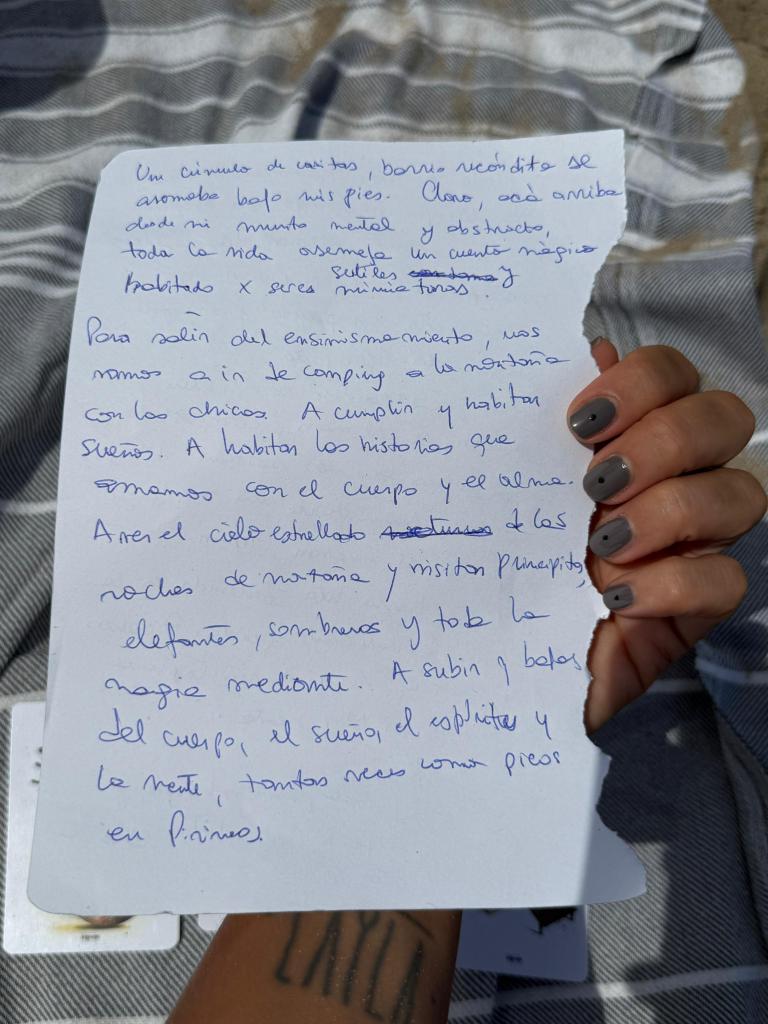 Un cúmulo de casitas, barrio recóndito se
asomaba bajo mis pies. Claro, acá arriba
desde mi mundo mental y abstracto,
toda la vida asemeja un cuento mágico
habitado x seres sutiles y miniaturas.
Para salir del ensimismamiento, nos
vamos a ir de camping a la montaña
con los chicos. A cumplir y habitar
sueños. A habitar las historias que
amamos con el cuerpo y el alma.
A ver el cielo estrellado de las
noches de montaña y visitar Principitos,
elefantes, sombreros y toda la
magia mediante. A subir y bajar
del cuerpo, el sueño, el espíritu y
la mente, tantas veces como picos
en Pirineos.
LAYLA